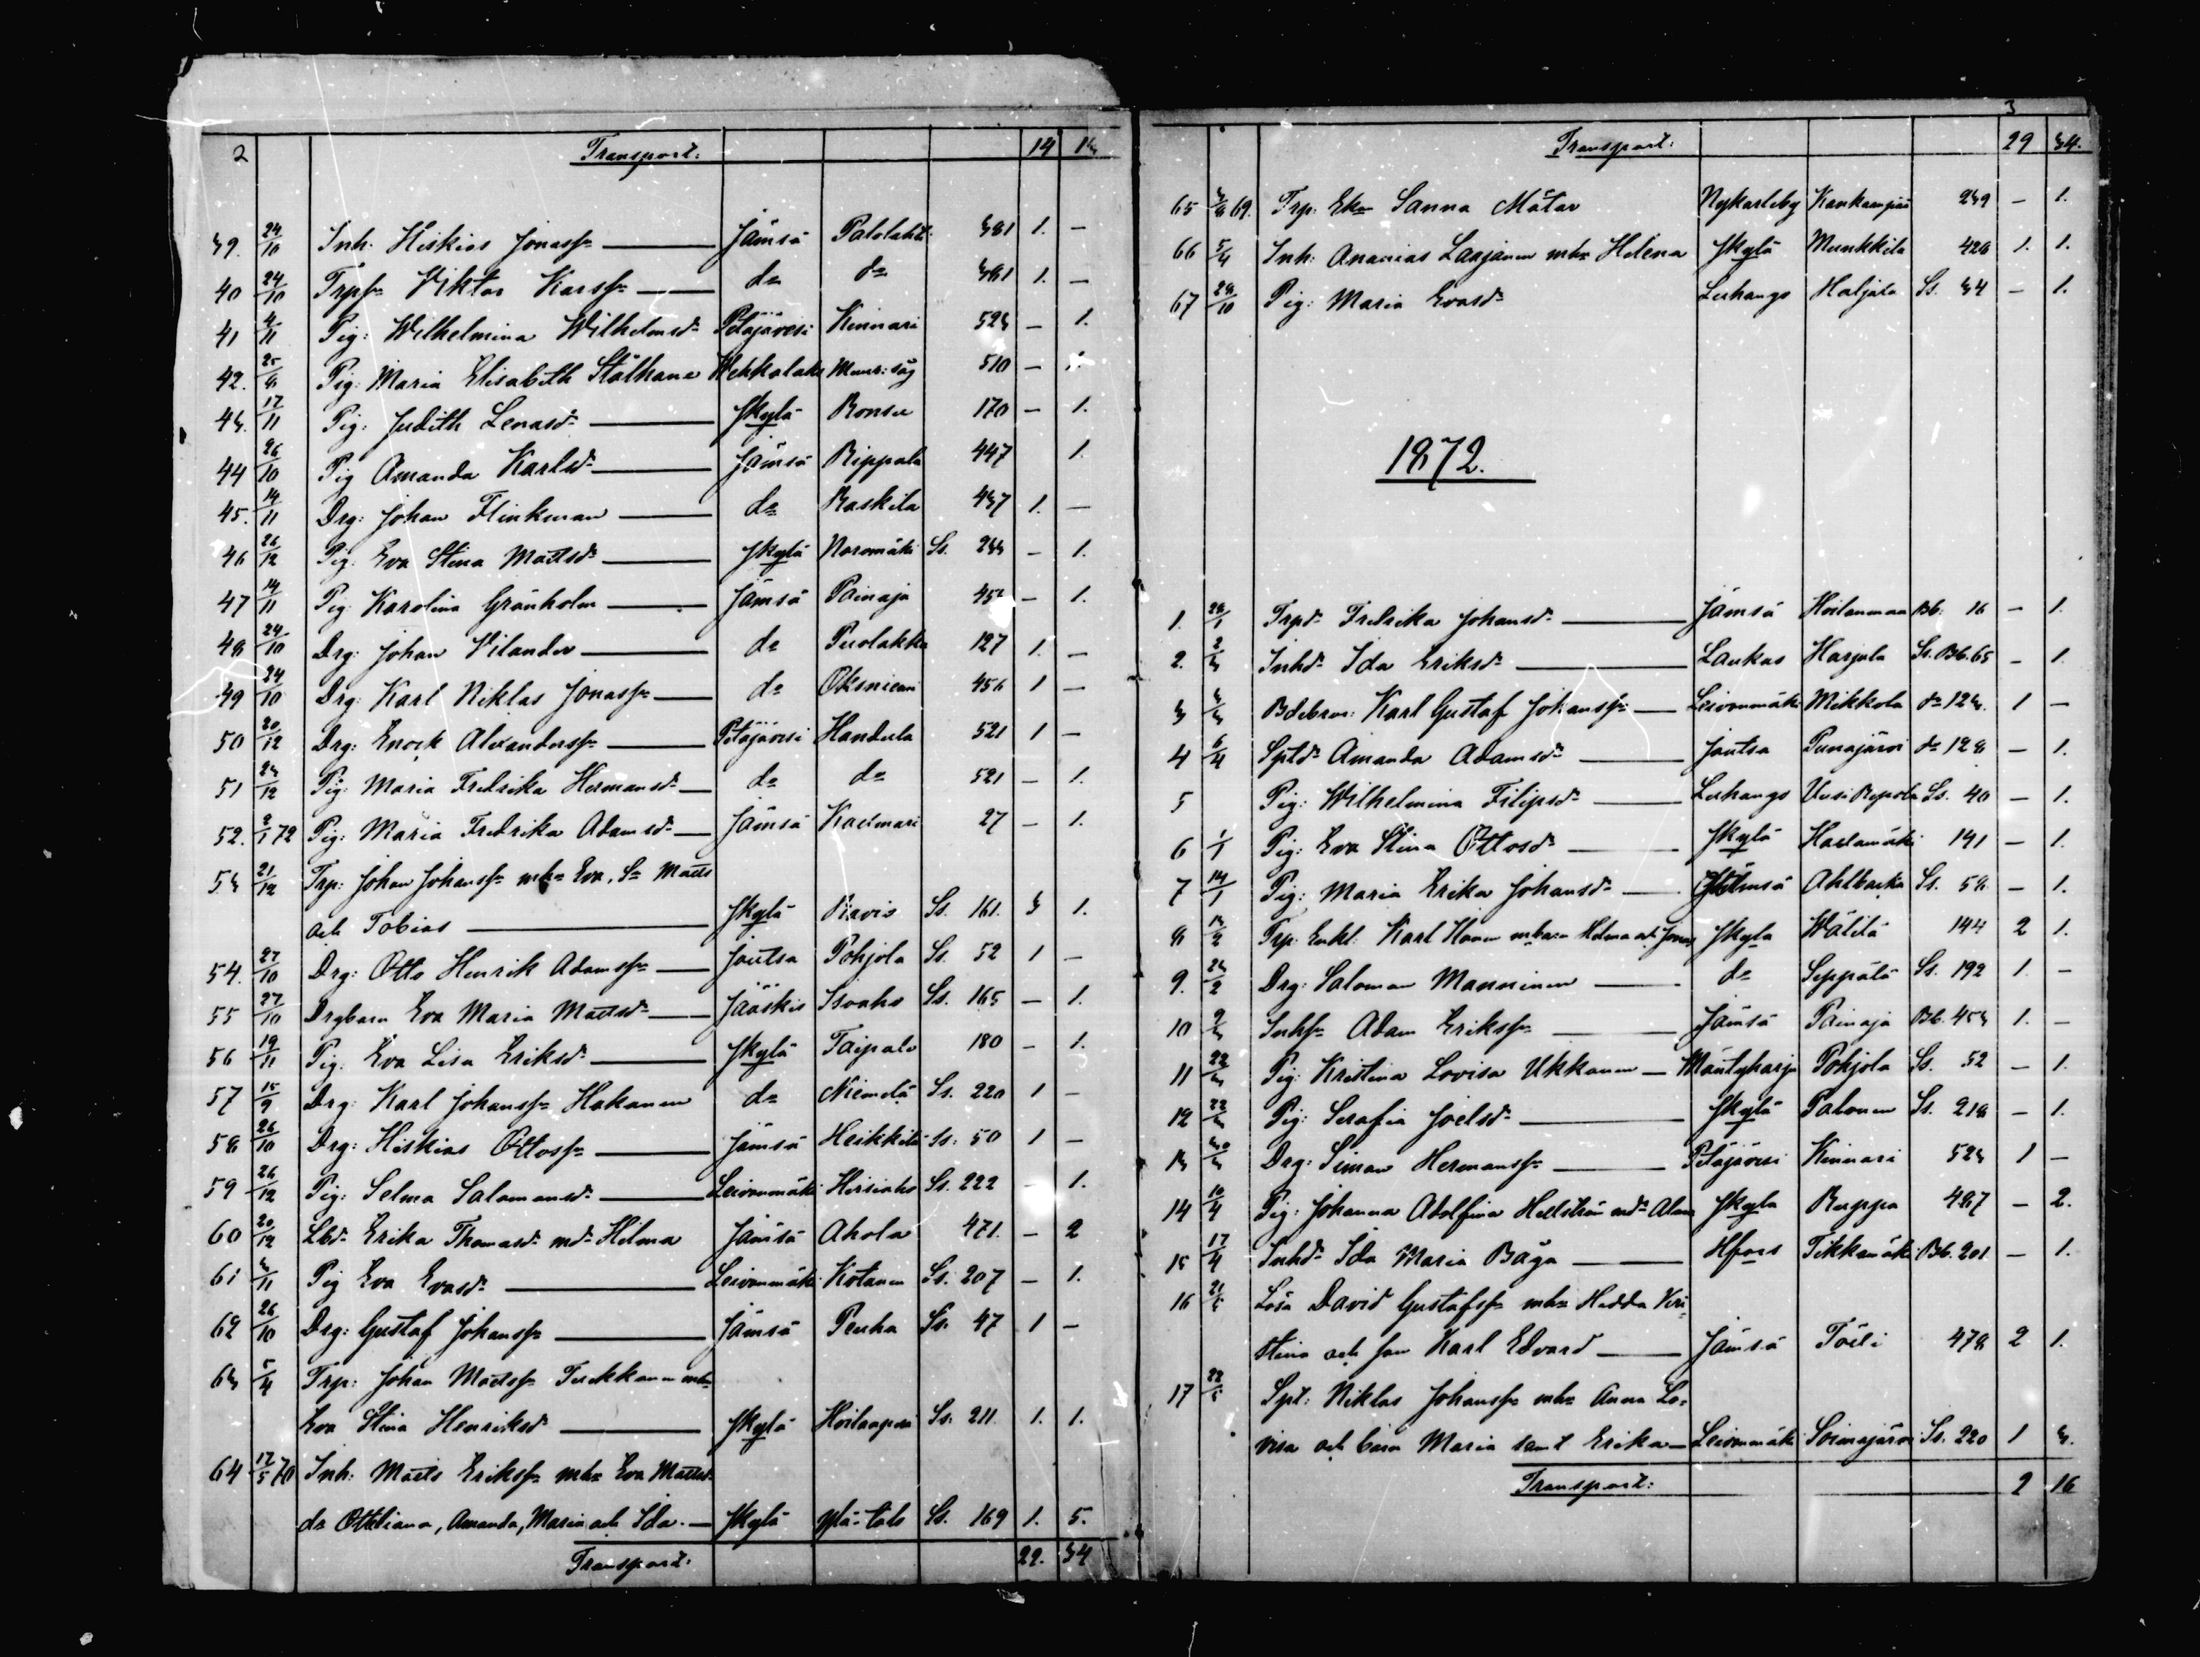 2 Transport: 14 13
39. 24/10 Inh. Hiskias Jonass. Jämsä Patalahti 381 1. —
40 24/10 Trps. Viktor Karss. do do 381 1. —
41 4/11 Pig: Wilhelmina Wilhelmsdr Petäjävesi Kinnari 523 — 1.
42. 25/8 Pig: Maria Elisabeth Stålhane Wehkalaks 510 — 1.
43. 17/11 Pig: Judith Lenasdr Jkylä Ronsu 170 — 1.
44 26/10 Pig Amanda Karlsdr Jämsä Rippala 447 1.
45. 14/11 Drg: Johan Flinkman do Raskila 437 1. —
46 26/12 Pig: Eva Stina Mattsdr Jkylä Noromäki Ss. 233 — 1.
47 14/11 Pig Karolina Grönholm Jämsä Painaja — 1.
48 24/10 Drg: Johan Vilander do Puolakka 127 1. —
49 24/10 Drg: Karl Niklas Jonass. do Oksniemi 456 1 —
50 20/12 Drg: Enock Alexanderss. Petäjävesi Handula 521 1 —
51 23/12 Pig: Maria Fredrika Hermansdr do do 521 — 1.
52. 2/1 72 Pig: Maria Fredrika Adamsdr Jämsä Kaclmari 27 — 1.
53 21/12 Trp: Johan Johanss. mhu Eva, Sr Matts
och Tobias Jkylä Ravis Ss. 161. 3 1.
54. 27/10 Drg: Otto Henrik Adamss. Joutsa Pohjola Ss. 52 1 —
55 27/10 Drgbarn Eva Maria Mattsdr Jääskis Isoaho Ss. 165 — 1.
56 19/11 Pig. Eva Lisa Eriksdr Jkylä Taipale 180 — 1.
57 15/9 Drg: Karl Johanss. Hakanen do Niemelä Ss. 220 1 —
58 26/10 Drg: Hiskias Ottoss. Jämsä Heikkilä Ss. 50 1 —
59 26/12 Pig: Selma Salomonsdr Leivonmäki Hirsiaho Ss. 222 — 1.
60 20/12 Lbdr Erika Thomasdr md Hilma Jämsä Ahola 471. — 2
61 3/11 Pig Eva Evasdr Leivonmäki Kotanen Ss. 207 — 1.
62 26/10 Drg: Gustaf Johanss. Jämsä Peuha Ss. 47 1 —
63 5/4 Trp: Johan Matss. mhu
Eva Stina Henriksd Jkylä Ss. 211. 1. 1.
64 12/5 70 Inh: Matts Erikss. mhu Eva Mattsd
dr Ottiliana, Amanda, Maria och Ida. Jkylä Ylä-talo Ss. 169 1. 5.
Transport: 29. 34
3
Transport: 29 34.
65 3/8 69. Trp: Eka Sanna Mätar Nykarleby 239 — 1.
66 5/4 Inh: Ananias Laajanen mhu Helena Jkylä Munkkila 428 1. 1.
67 28/10 Pig: Maria Evasdr Luhango Haljala Ss. 34 — 1.
1872.
1. 28/1 Trpdr Fredrika Johansdr Jämsä Hoilanmaa Bb. 16 — 1.
2. 2/3 Inhdr Ida Eriksdr Laukas Harjula Ss. Bb. 65 — 1.
3 3/3 Karl Gustaf Johanss. Leivonmäki Mikkola do 123. 1 —
4 6/4 Spldr Amanda Adamsdr Joutsa Punajärvi do 128 — 1.
5 Pig: Wilhelmina Filipsdr Luhango Uusi Repola Ss. 40 — 1.
6 1/1 Pig: Eva Stina Ottosdr Jkylä Haclamäki 141 — 1.
7 14/1 Pig: Maria Erika Johansdr Jämsä Ahlbacka Ss. 58 — 1.
8 13/2 Trp. Enkl: Karl Hanen mbarn Helma och Jonas Jkyla Wälilä 144 2 1.
9. 23/2 Drg: Salomon Manninen do Seppälä Ss. 192 1. —
10 9/3 Inhs. Adam Erikss. Jämsä Painaja Bb. 453 1. —
11 22/3 Pig: Kristina Lovisa Ukkanen Mäntyharju Pohjola Ss. 52 — 1.
12 22/3 Pig: Serafia Joelsdr Jkylä Palonen Ss. 218 — 1.
13 30/3 Drg: Simon Hermanss. Petäjävesi Kinnari 523 1 —
14 10/4 Pig: Johanna Adolfina Hellström mdr Alma Jkyla Ruppa 487 — 2.
15 17/4 Inhdr Ida Maria Båga Hfors Tikkamäki Bb. 201 — 1.
16 21/5 Lösa David Gustafss. mhu Hedda Kri-
stina och son Karl Edvard Jämsä Töili 478 2 1.
17 22/5 Spt: Niklas Johanss. mhu Anna Lo-
visa och barn Maria samt Erika Leivonmäki Soimajärvi Ss. 220 1 3.
Transport: 9 16